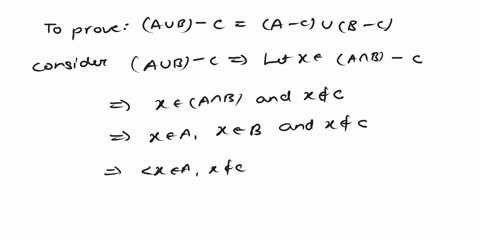 To prove: (A∪B) - C = (A-C) ∪ (B-C)
Consider (A∪B) - C ⇒ Let x ∈ (A∩B) - C
⇒ x ∈ (A∩B) and x ∉ C
⇒ x ∈ A, x ∈ B and x ∉ C
⇒ <x ∈ A, x ∉ C